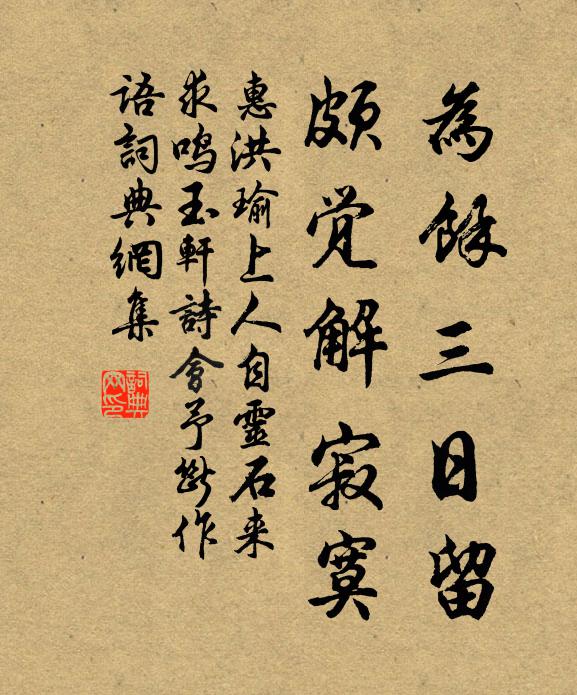 為餘三日留
頗覺解寂寞
惠洪瑜上人自靈石来
求鳴玉軒詩會予斷作
語詞典網集
詞典
网印